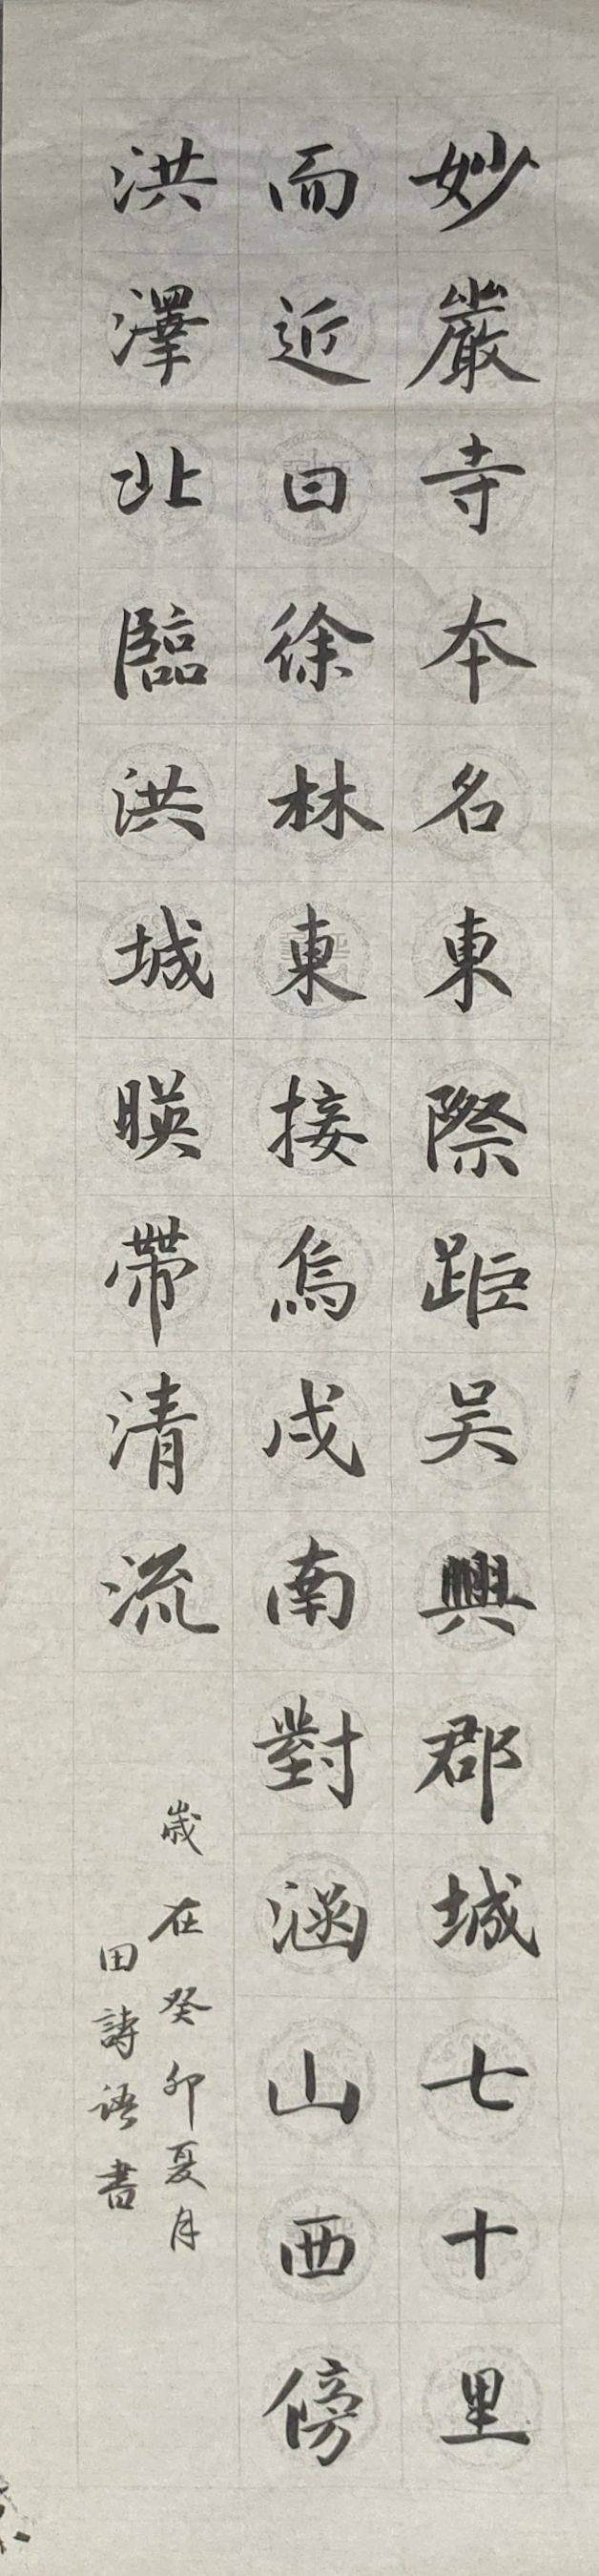 妙嚴寺本名東際距吴興郡城七十里
而近曰徐林東接烏戍南對涵山西傍
洪澤北臨洪城暎帶清流
歲在癸卯夏月
田詩語書